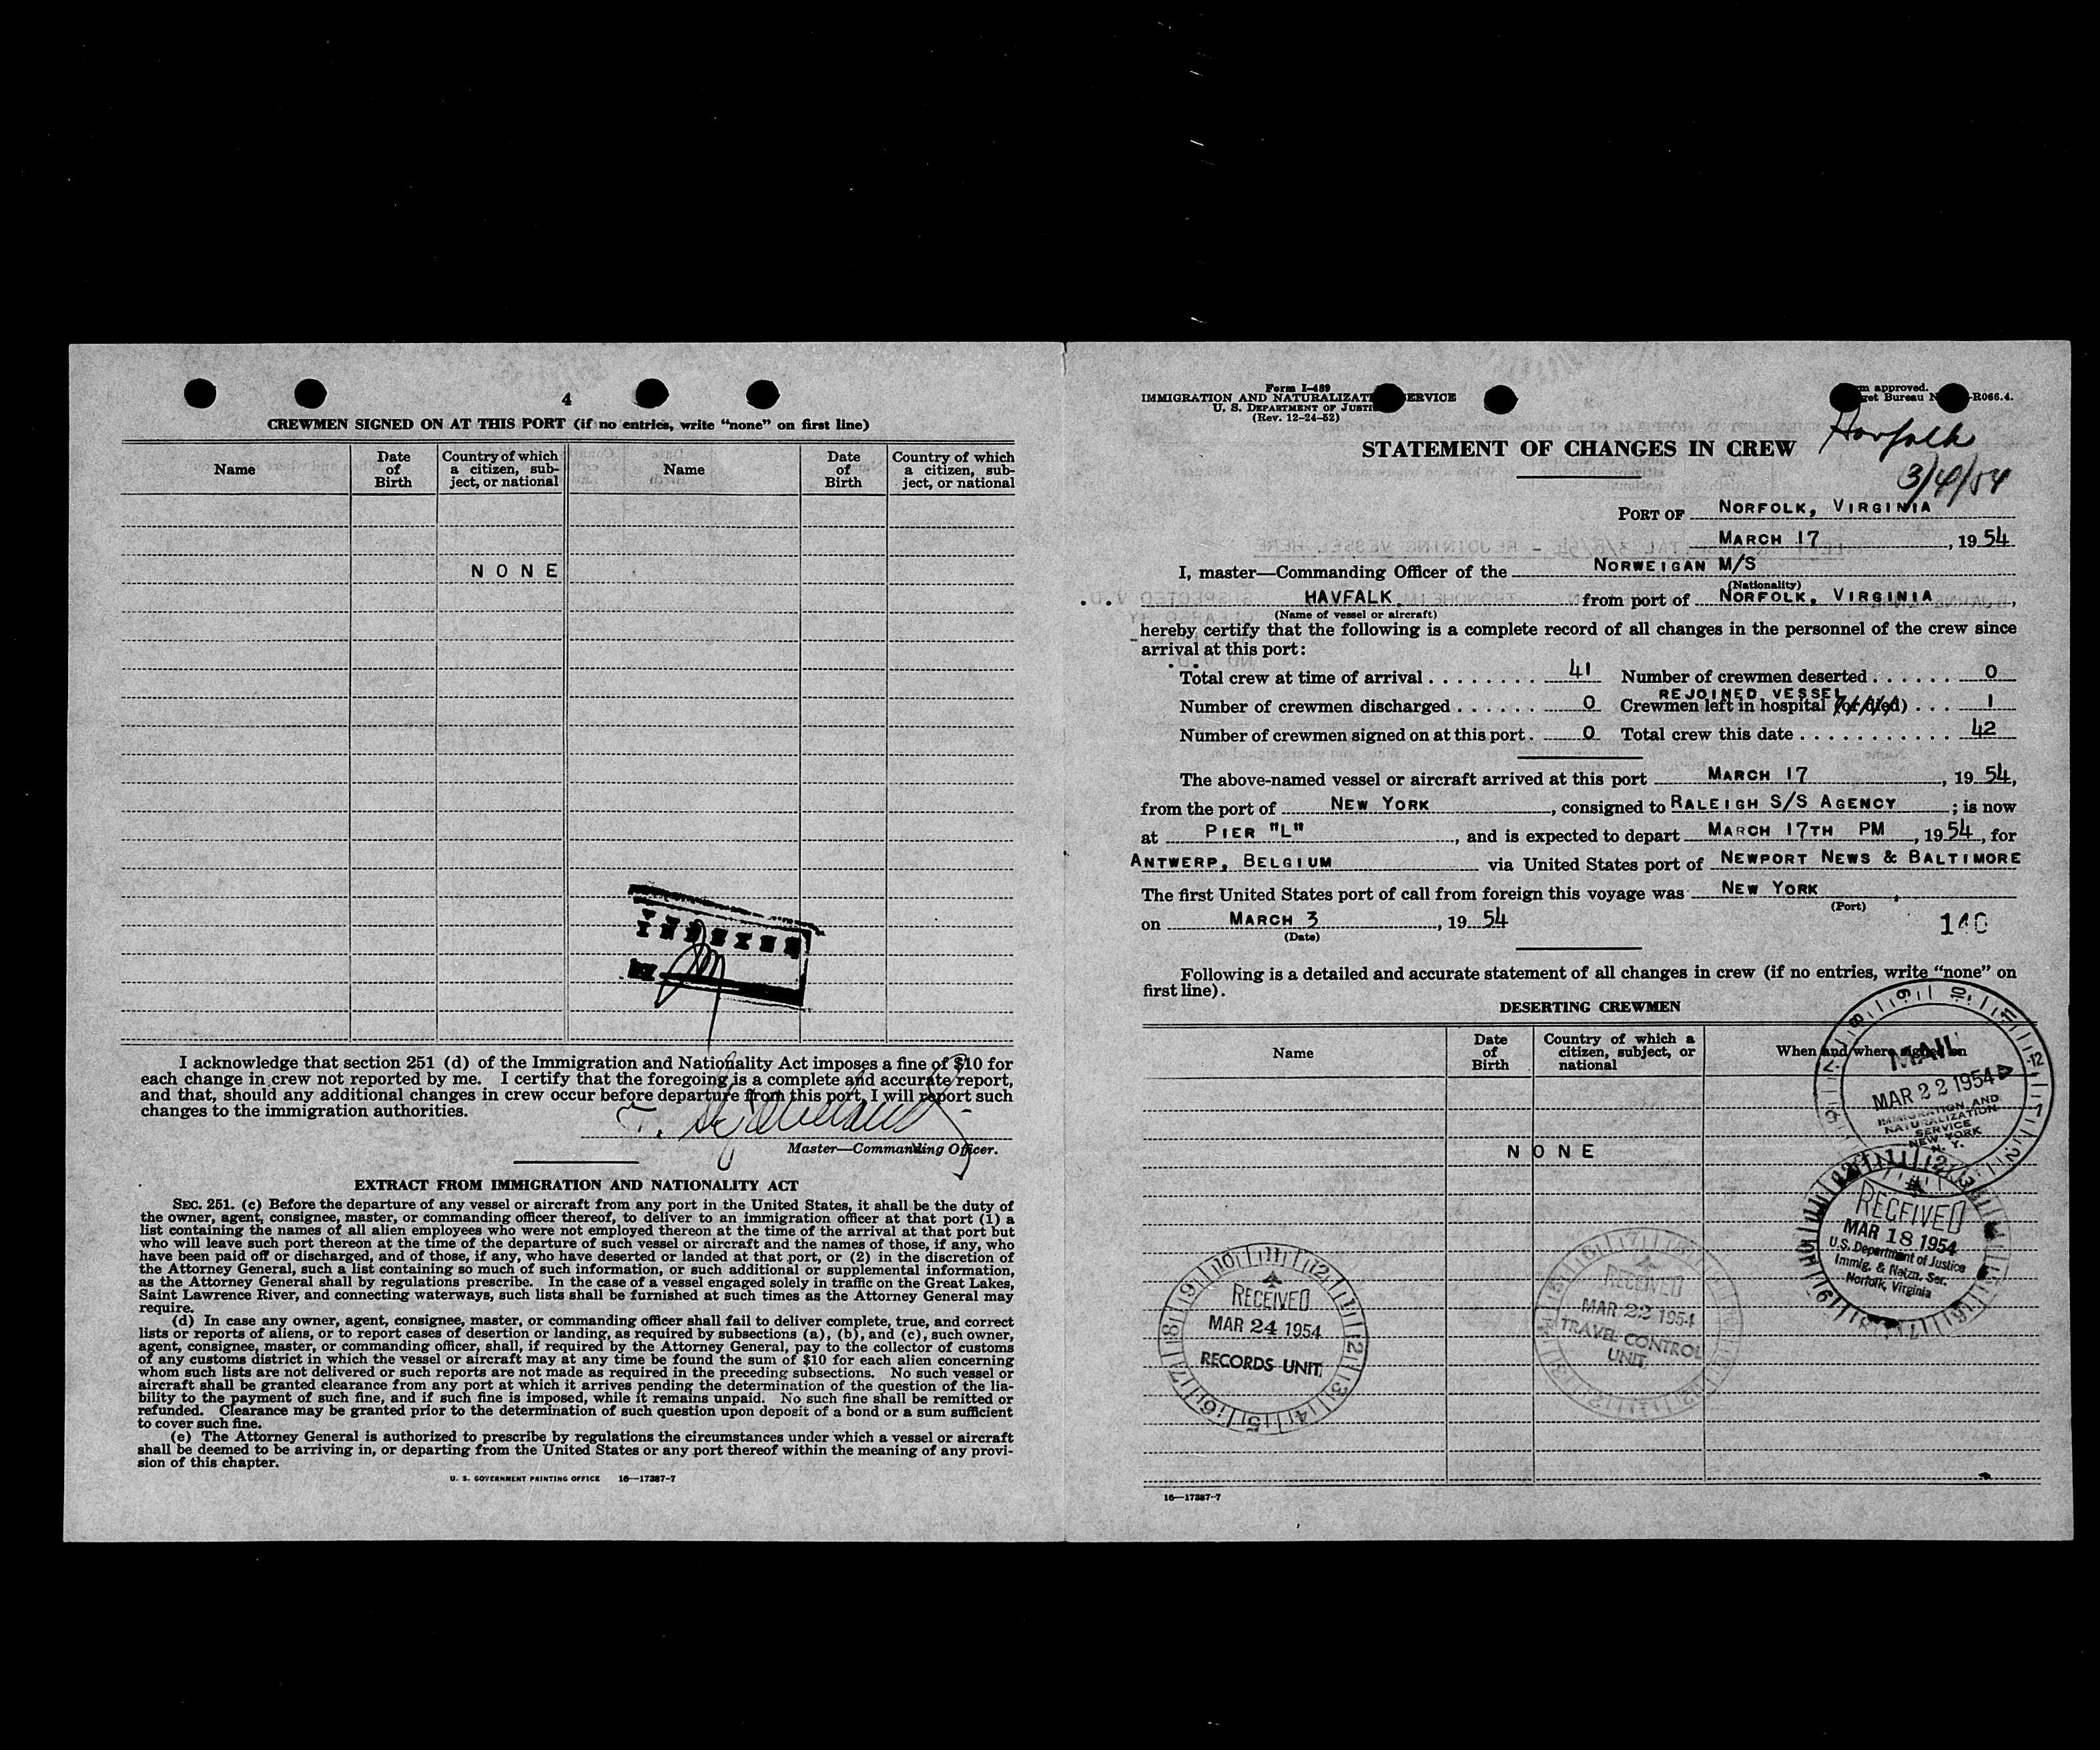 4
CREWMEN SIGNED ON AT THIS PORT (if no entries, write “none” on first line)
Name
Date of Birth
Country of which a citizen, sub-
ject, or national
Name
Date of Birth
Country of which a citizen, sub-
ject, or national
NONE
INDEXED
I acknowledge that section 251 (d) of the Immigration and Nationality Act imposes a fine of $10 for
each change in crew not reported by me. I certify that the foregoing is a complete and accurate report,
and that, should any additional changes in crew occur before departure from this port, I will report such
changes to the immigration authorities.
Master—Commanding Officer.
EXTRACT FROM IMMIGRATION AND NATIONALITY ACT
SEC. 251. (c) Before the departure of any vessel or aircraft from any port in the United States, it shall be the duty of
the owner, agent, consignee, master, or commanding officer thereof, to deliver to an immigration officer at that port (1) a
list containing the names of all alien employees who were not employed thereon at the time of the arrival at that port but
who will leave such port thereon at the time of the departure of such vessel or aircraft and the names of those, if any, who
have been paid off or discharged, and of those, if any, who have deserted or landed at that port, or (2) in the discretion of
the Attorney General, such a list containing so much of such information, or such additional or supplemental information,
as the Attorney General shall by regulations prescribe. In the case of a vessel engaged solely in traffic on the Great Lakes,
Saint Lawrence River, and connecting waterways, such lists shall be furnished at such times as the Attorney General may
require.
(d) In case any owner, agent, consignee, master, or commanding officer shall fail to deliver complete, true, and correct
lists or reports of aliens, or to report cases of desertion or landing, as required by subsections (a), (b), and (c), such owner,
agent, consignee, master, or commanding officer, shall, if required by the Attorney General, pay to the collector of customs
of any customs district in which the vessel or aircraft may at any time be found the sum of $10 for each alien concerning
whom such lists are not delivered or such reports are not made as required in the preceding subsections. No such vessel or
aircraft shall be granted clearance from any port at which it arrives pending the determination of the question of the lia-
bility to the payment of such fine, and if such fine is imposed, while it remains unpaid. No such fine shall be remitted or
refunded. Clearance may be granted prior to the determination of such question upon deposit of a bond or a sum sufficient
to cover such fine.
(e) The Attorney General is authorized to prescribe by regulations the circumstances under which a vessel or aircraft
shall be deemed to be arriving in, or departing from the United States or any port thereof within the meaning of any provi-
sion of this chapter.
U. S. GOVERNMENT PRINTING OFFICE 16—17387-7
Form I-489
IMMIGRATION AND NATURALIZATI ERVICE
U. S. DEPARTMENT OF JUSTI
(Rev. 12-24-52)
approved.
et Bureau N -R066.4.
STATEMENT OF CHANGES IN CREW
Norfolk
3/4/54
PORT OF NORFOLK, VIRGINIA
MARCH 17, 1954
I, master—Commanding Officer of the NORWEIGAN M/S
(Nationality)
HAVFALK from port of NORFOLK, VIRGINIA,
(Name of vessel or aircraft)
hereby certify that the following is a complete record of all changes in the personnel of the crew since
arrival at this port:
Total crew at time of arrival . . . . . . . . 41 Number of crewmen deserted . . . . . . 0
REJOINED VESSEL
Number of crewmen discharged . . . . . . 0 Crewmen left in hospital (or died) . . . 1
Number of crewmen signed on at this port . 0 Total crew this date . . . . . . . . . . . 42
The above-named vessel or aircraft arrived at this port MARCH 17, 1954,
from the port of NEW YORK, consigned to RALEIGH S/S AGENCY; is now
at PIER "L", and is expected to depart MARCH 17TH PM, 1954, for
ANTWERP, BELGIUM via United States port of NEWPORT NEWS & BALTIMORE
The first United States port of call from foreign this voyage was NEW YORK,
(Port)
on MARCH 3, 1954
(Date)
140
Following is a detailed and accurate statement of all changes in crew (if no entries, write “none” on
first line).
DESERTING CREWMEN
Name
Date of Birth
Country of which a citizen, subject, or national
When and where signed on
NONE
MAIL
MAR 22 1954
IMMIGRATION AND
NATURALIZATION
SERVICE
NEW YORK
N. Y.
RECEIVED
MAR 18 1954
U.S. Department of Justice
Immig. & Natzn. Ser.
Norfolk, Virginia
RECEIVED
MAR 24 1954
RECORDS UNIT
RECEIVED
MAR 22 1954
TRAVEL CONTROL
UNIT
16—17387-7